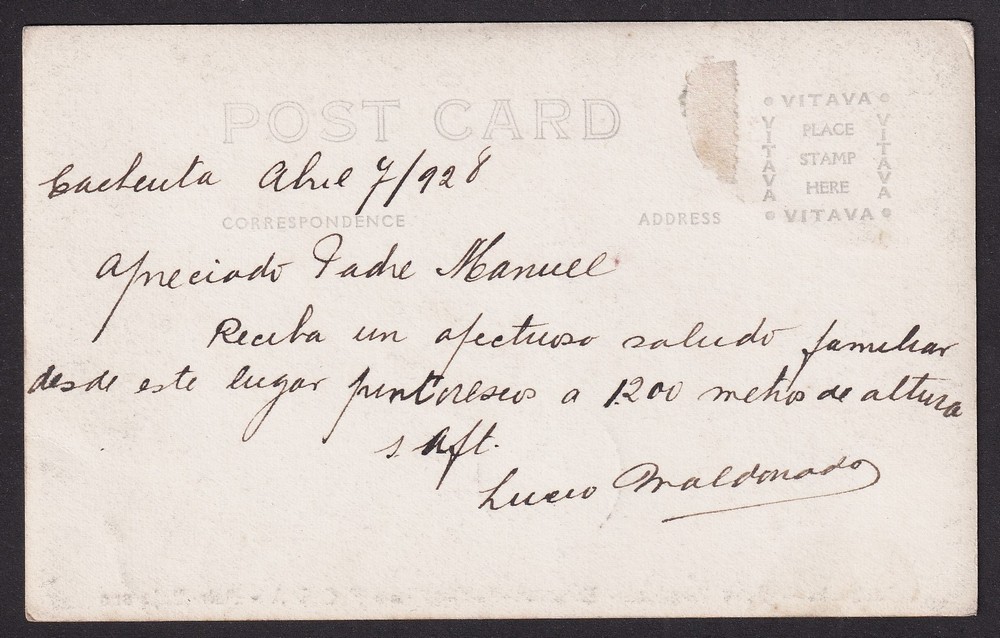 POST CARD
VITAVA
VITAVA
PLACE
STAMP
HERE
VITAVA
VITAVA
Cacheuta Abril 7/928
CORRESPONDENCE
ADDRESS
Apreciado Padre Manuel
Reciba un afectuoso saludo familiar
desde este lugar pintoresco a 1200 metros de altura
s afft.
Lucio Maldonado